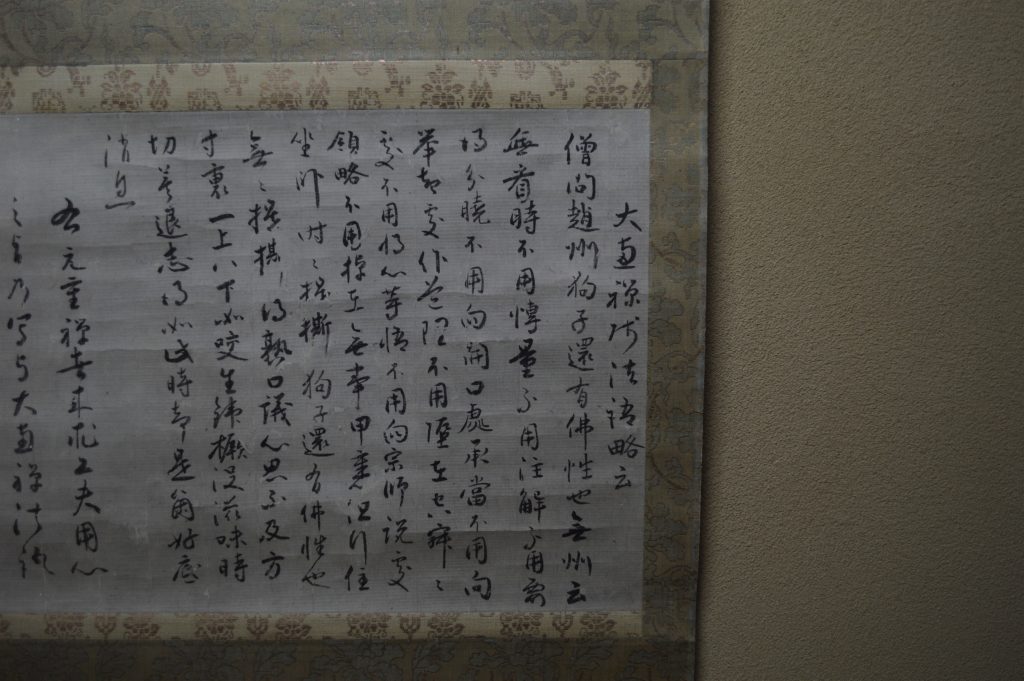 大慧禅师法語略云
僧問趙州狗子還有佛性也無州云
無看時不用博量不用注解不用要
得分曉不用向開口處承當不用向
舉起處作道理不用墮在空寂々
處不用將心等悟不用向宗師說處
領略不用掉在無事甲裏但行住
坐卧時々提撕狗子還有佛性也
無々提撕得熟口議心思不及方
寸裏七上八下如咬生鐵橛没滋味時
切莫退志得如此時却是箇好底
消息
元重禅者来求工夫用心
之旨乃写与大慧禅法語